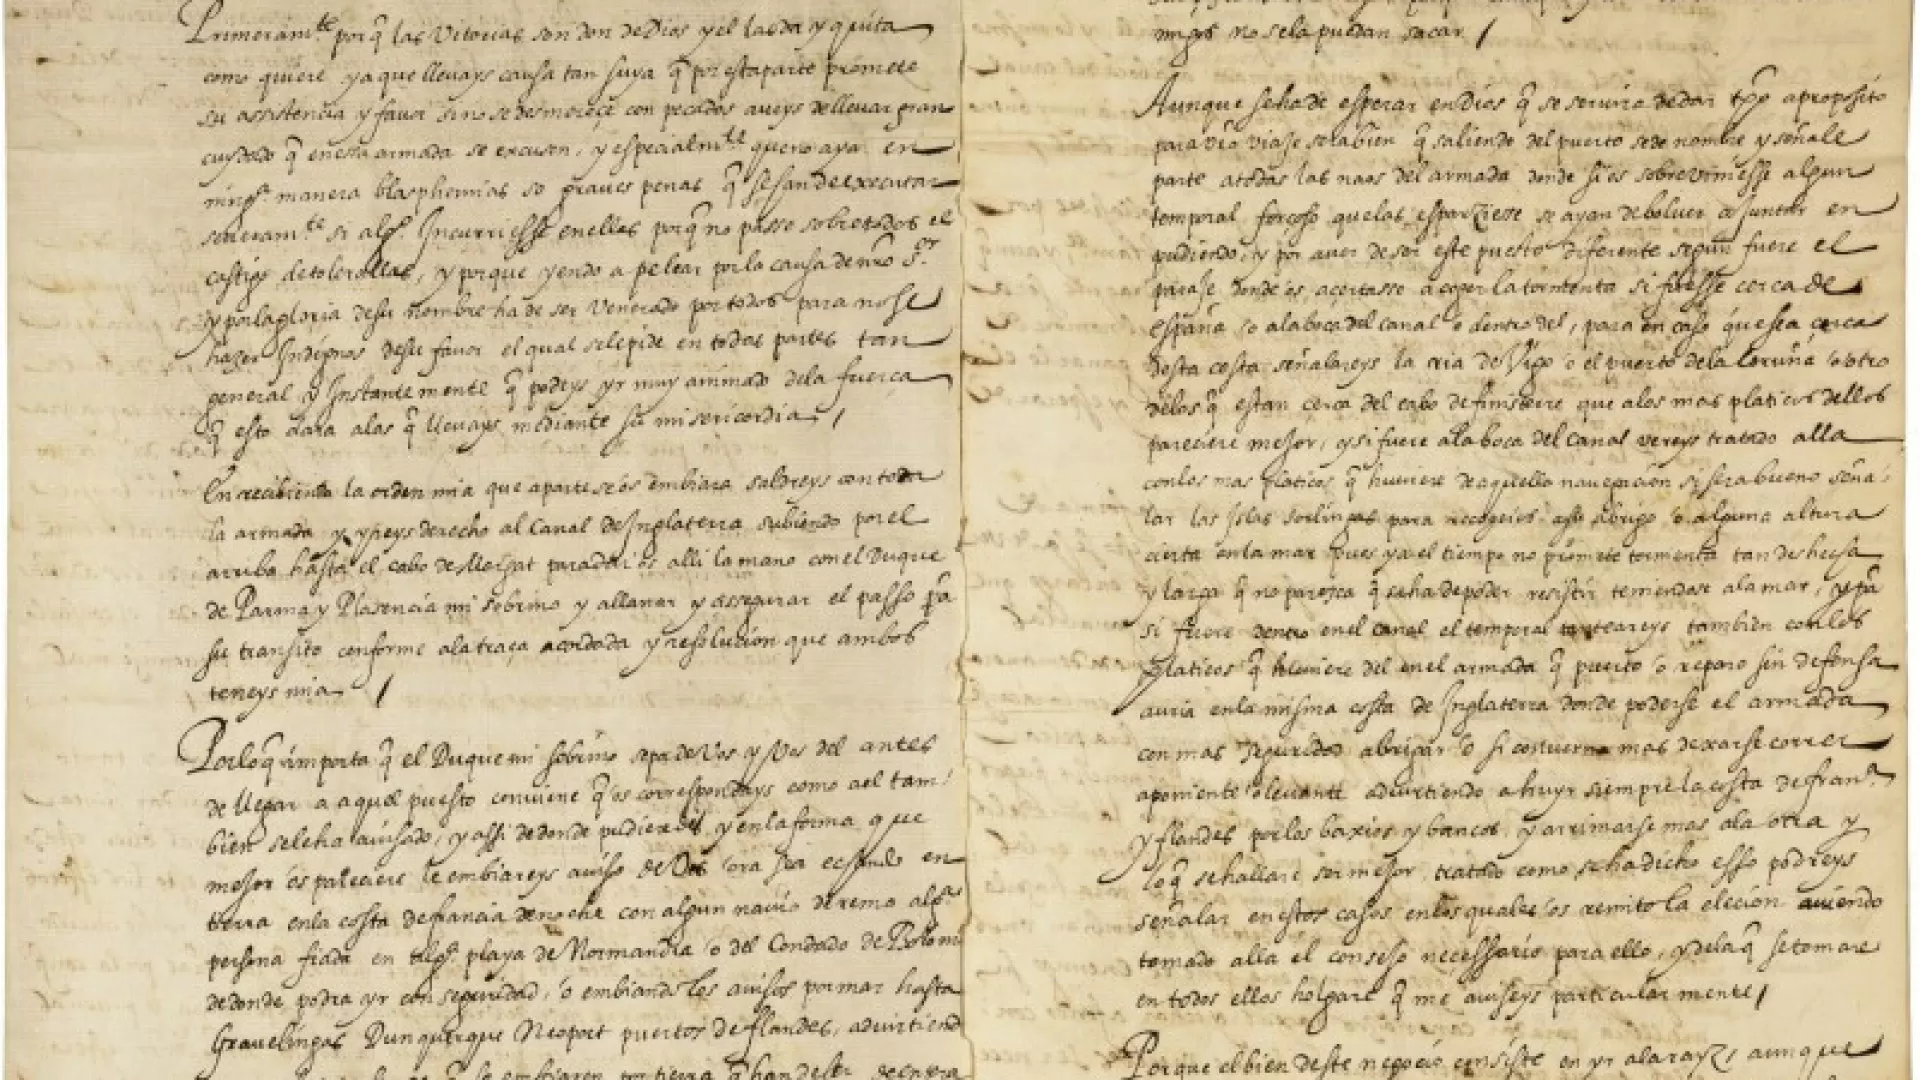 Primeramte porq̃ las Vitorias son don de Dios y el las da y quita
como quiere ya que llevays causa tan suya q̃ por esta parte promete
su assistencia y favor si no se desmereçe con pecados aveys de llevar gran
cuydado q̃ en esta armada se excusen, y especialmte que no aya en
ningª manera blasphemias so graves penas q̃ se han de executar
severamte si algº Incurriesse en ellas porq̃ no passe sobre todos el
castigo de tolerallas, y porque yendo a pelear por la causa de nro Sor
y por la gloria de su nombre ha de ser venerado por todos para no se
hazer Indignos de su favor el qual se le pide en todas partes tan
general y Instantemente q̃ podeys yr muy animado de la fuerça
q̃ esto dara a las q̃ llevays mediante su misericordia /
En recibiendo la orden mia que aparte se os embiara saldreys con toda
la armada y yreys derecho al Canal de Inglaterra subiendo por el
arriba hasta el cabo de Margat para daros alli la mano con el Duque
de Parma y Plasencia mi sobrino y allanar y assegurar el passo pª
su transito conforme a la traça acordada y resolucion que ambos
teneys mia /
Por lo q̃ importa q̃ el Duque mi sobrino sepa de Vos y Vos del antes
de llegar a aquel puesto conviene q̃ os correspondays como a el tam-
bien se le ha avisado, y assi de donde pudieredes y en la forma que
mejor os pareciere le embiareys aviso de Vos ora sea echando en
tierra en la costa de francia de noche con algun navio de remo algª
persona fiada en algª playa de Normandia o del Condado de Boloña
de donde podra yr con seguridad, o embiando los avisos por mar hasta
Gravelingas Dunquerque Neoport puertos de flandes, advirtiendo
q̃ se embiaren por tierra q̃ han de ser de
migos no se la puedan sacar /
Aunque se ha de esperar en Dios q̃ se servira de dar tpo a proposito
para vro viaje sera bien q̃ saliendo del puerto se de nombre y señale
parte a todas las naos del armada donde si os sobreviniesse algun
temporal forçoso que las esparziese se ayan de bolver a juntar en
pudiendo, y por aver de ser este puesto diferente segun fuere el
paraje donde os acertasse a coger la tormenta si fuesse cerca de
españa o a la boca del canal o dentro del, para en caso que sea cerca
desta costa señalareys la ria de Vigo o el puerto de la Coruña o otro
de los q̃ estan cerca del cabo de finisterre que a los mas platicos dellos
pareciere mejor, y si fuere a la boca del Canal vereys tratado alla
con los mas platicos q̃ huviere de aquella navegacion si sera bueno seña-
lar las Islas sorlingas para recogeros a su abrigo o alguna altura
cierta en la mar pues ya el tiempo no promete tormenta tan deshecha
y larga q̃ no parezca q̃ se ha de poder resistir teniendose a la mar, y
si fuere dentro en el canal el temporal tanteareys tambien con los
platicos q̃ huviere del en el armada q̃ puerto o reparo sin defensa
avria en la misma costa de Inglaterra donde poderse el armada
con mas seguridad abrigar o si converna mas dexarse correr
a poniente o levante advirtiendo a huyr siempre la costa de franª
y flandes por los baxios y bancos y arrimarse mas a la otra y
lo q̃ se hallare ser mejor, tratado como se ha dicho esso podreys
señalar en estos casos en los quales os remito la elecion aviendo
tomado alla el consejo necessario para ello, y de la q̃ se tomare
en todos ellos holgare q̃ me aviseys particularmente /
Porque el bien deste negocio consiste en yr a la rayz aunque